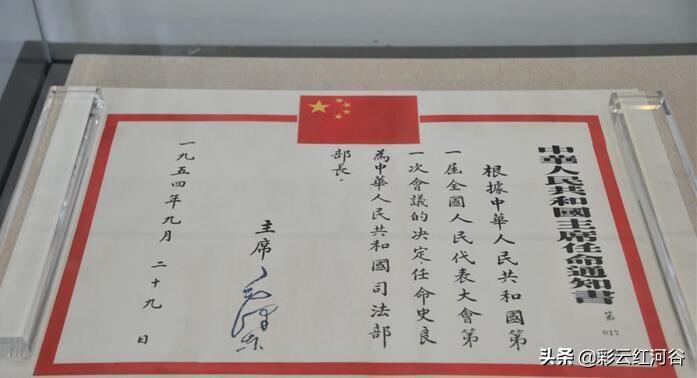 中華人民共和國主席任命通知書
第 017
根據中華人民共和國第
一屆全國人民代表大會第
一次會議的决定，任命史良
為中華人民共和國司法部
部長。
主席 毛澤东
一九五四年九月二十九日
头条 @彩云红河谷